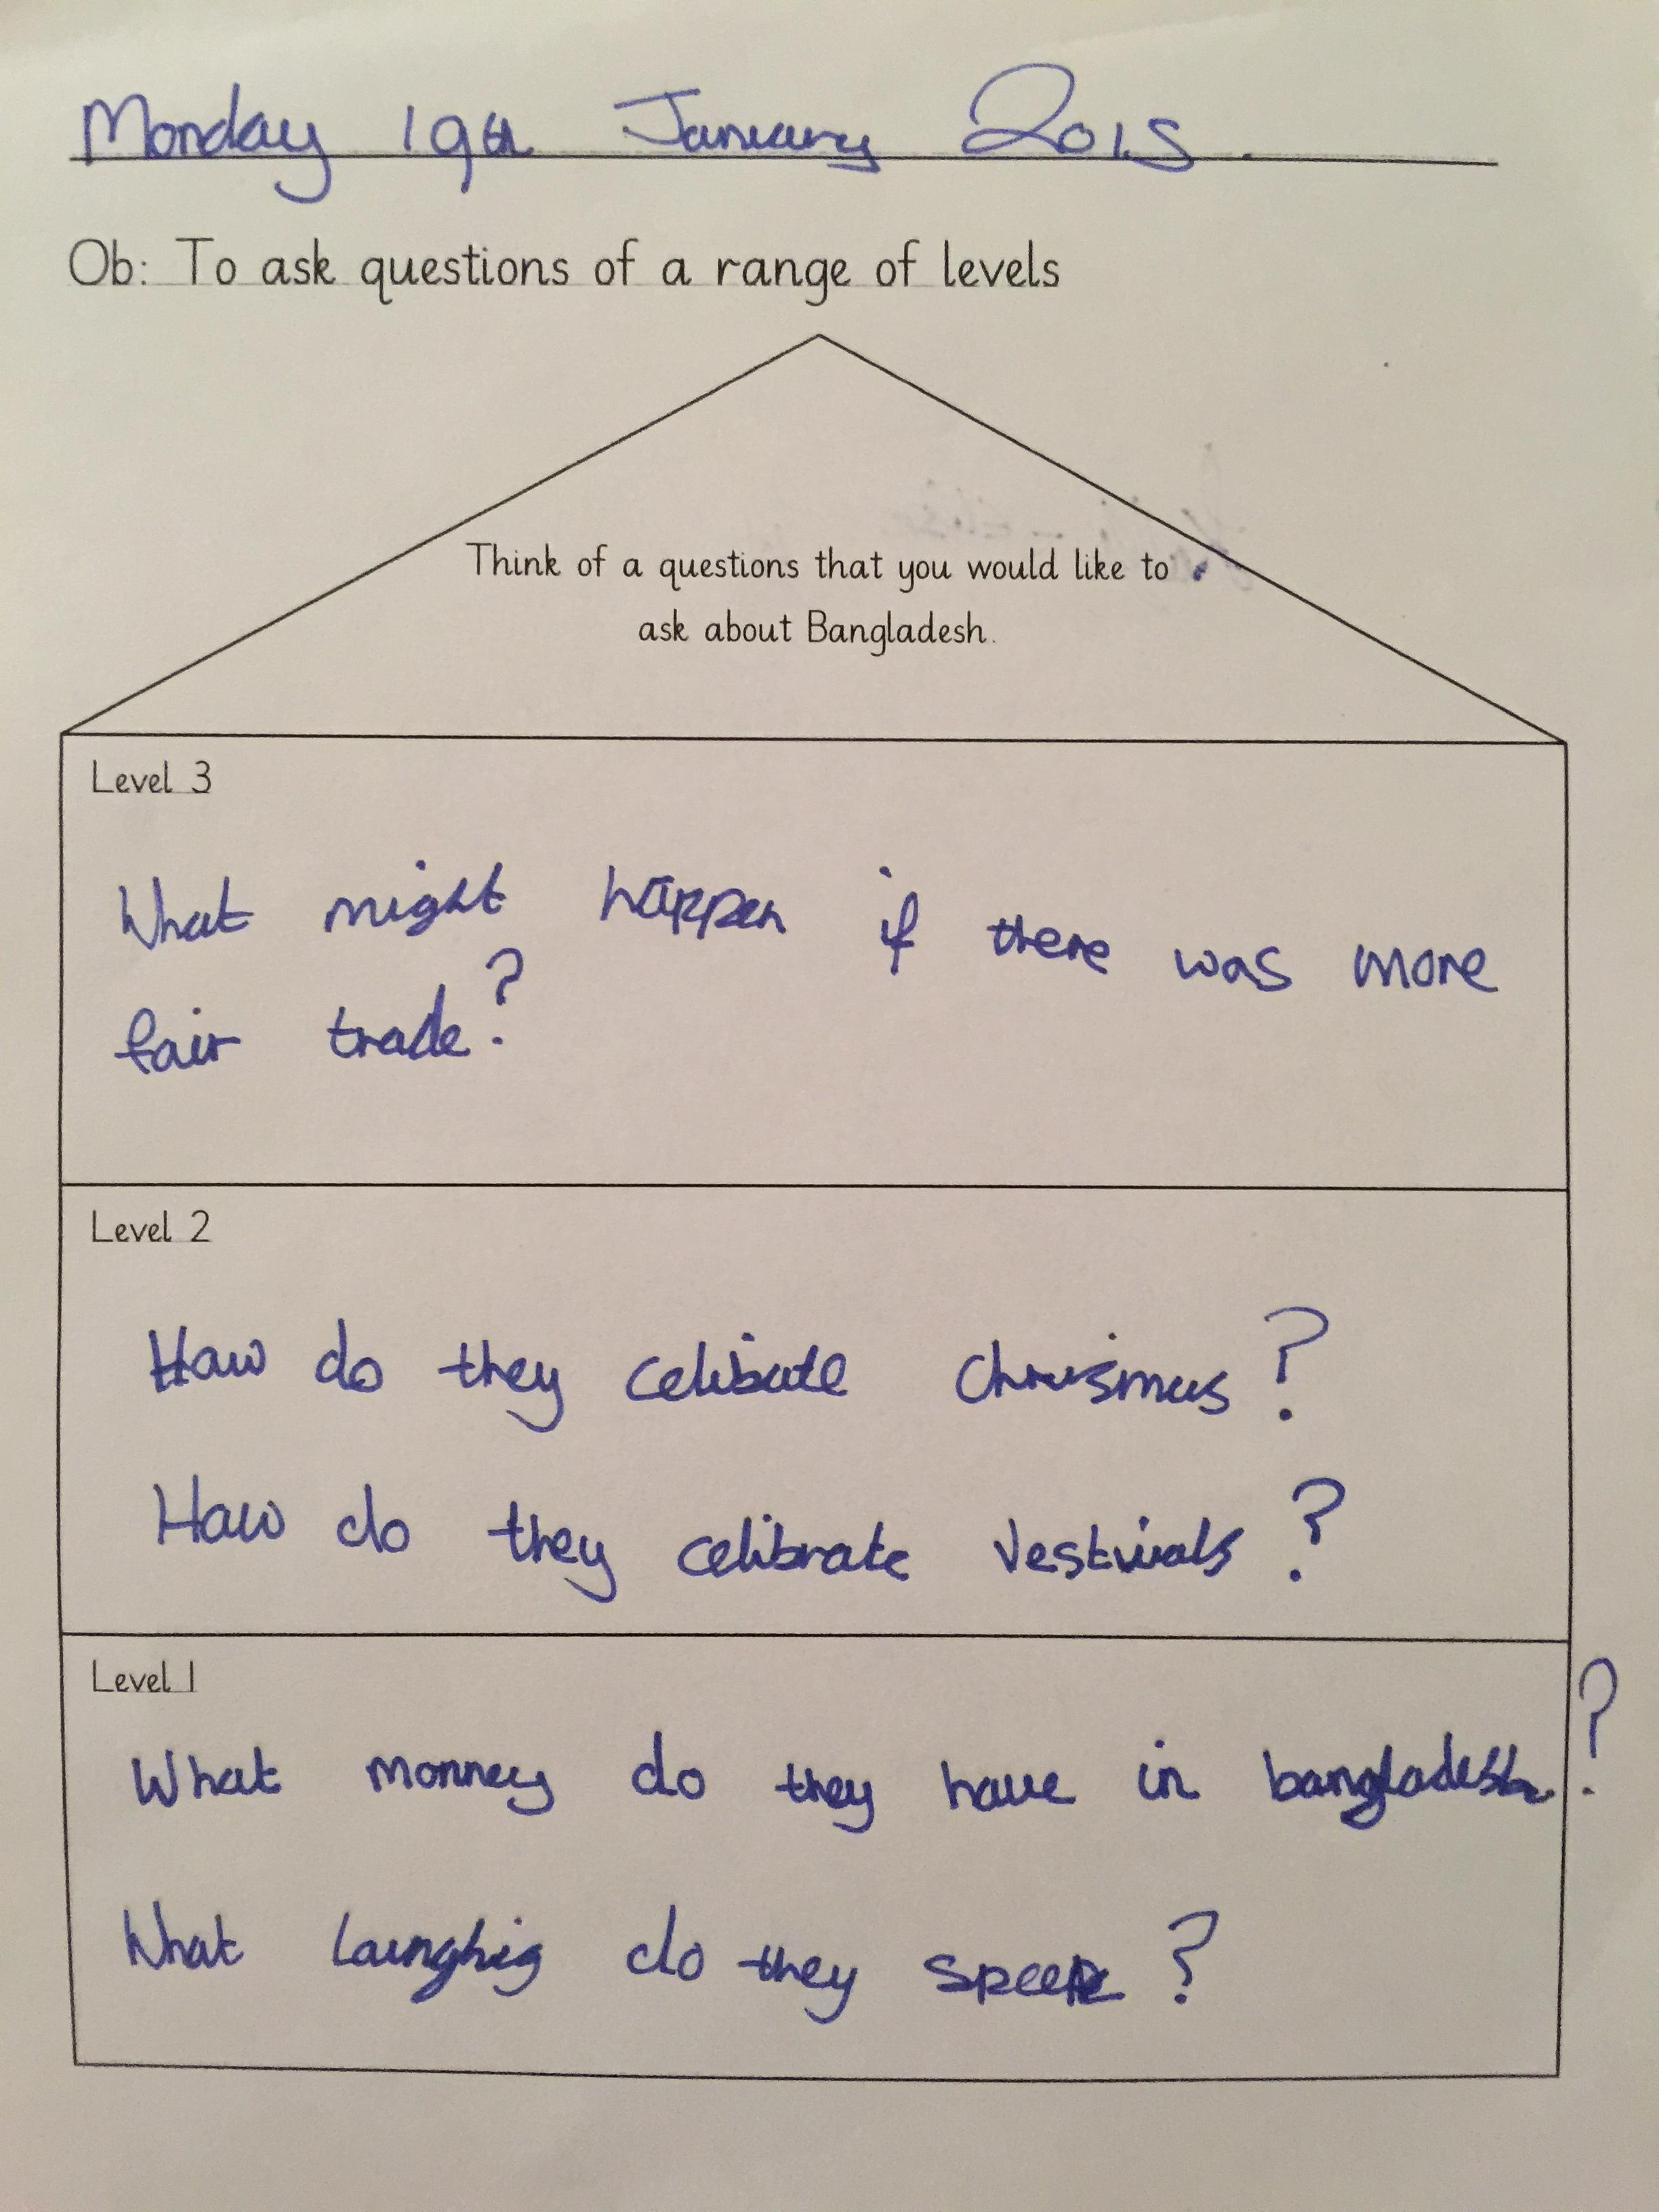 Monday 19th January 2015.
Ob: To ask questions of a range of levels
Think of a questions that you would like to
ask about Bangladesh.
Level 3
What might happen if there was more
fair trade?
Level 2
Haw do they celibate Chrismus?
Haw do they celibrate Vestivals?
Level 1
What monney do they have in bangladesh?
What launghig do they speek?